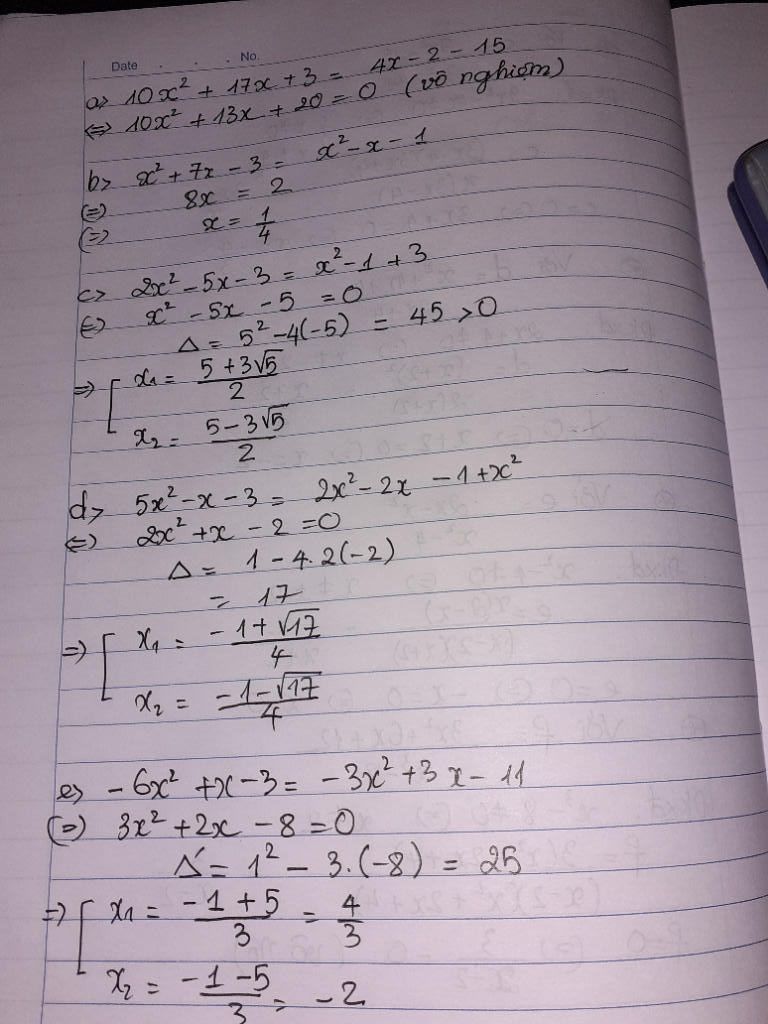 Date . . . No.
a> 10x² + 17x + 3 = 4x - 2 - 15
<=> 10x² + 13x + 20 = 0 (vô nghiệm)
b> x² + 7x - 3 = x² - x - 1
<=> 8x = 2
<=> x = 1/4
c> 2x² - 5x - 3 = x² - 1 + 3
<=> x² - 5x - 5 = 0
Δ = 5² - 4(-5) = 45 > 0
=> [ x₁ = (5 + 3√5)/2
x₂ = (5 - 3√5)/2
d> 5x² - x - 3 = 2x² - 2x - 1 + x²
<=> 2x² + x - 2 = 0
Δ = 1 - 4.2(-2)
= 17
=> [ x₁ = (-1 + √17)/4
x₂ = (-1 - √17)/4
e> -6x² + x - 3 = -3x² + 3x - 11
<=> 3x² + 2x - 8 = 0
Δ' = 1² - 3.(-8) = 25
=> [ x₁ = (-1 + 5)/3 = 4/3
x₂ = (-1 - 5)/3 = -2